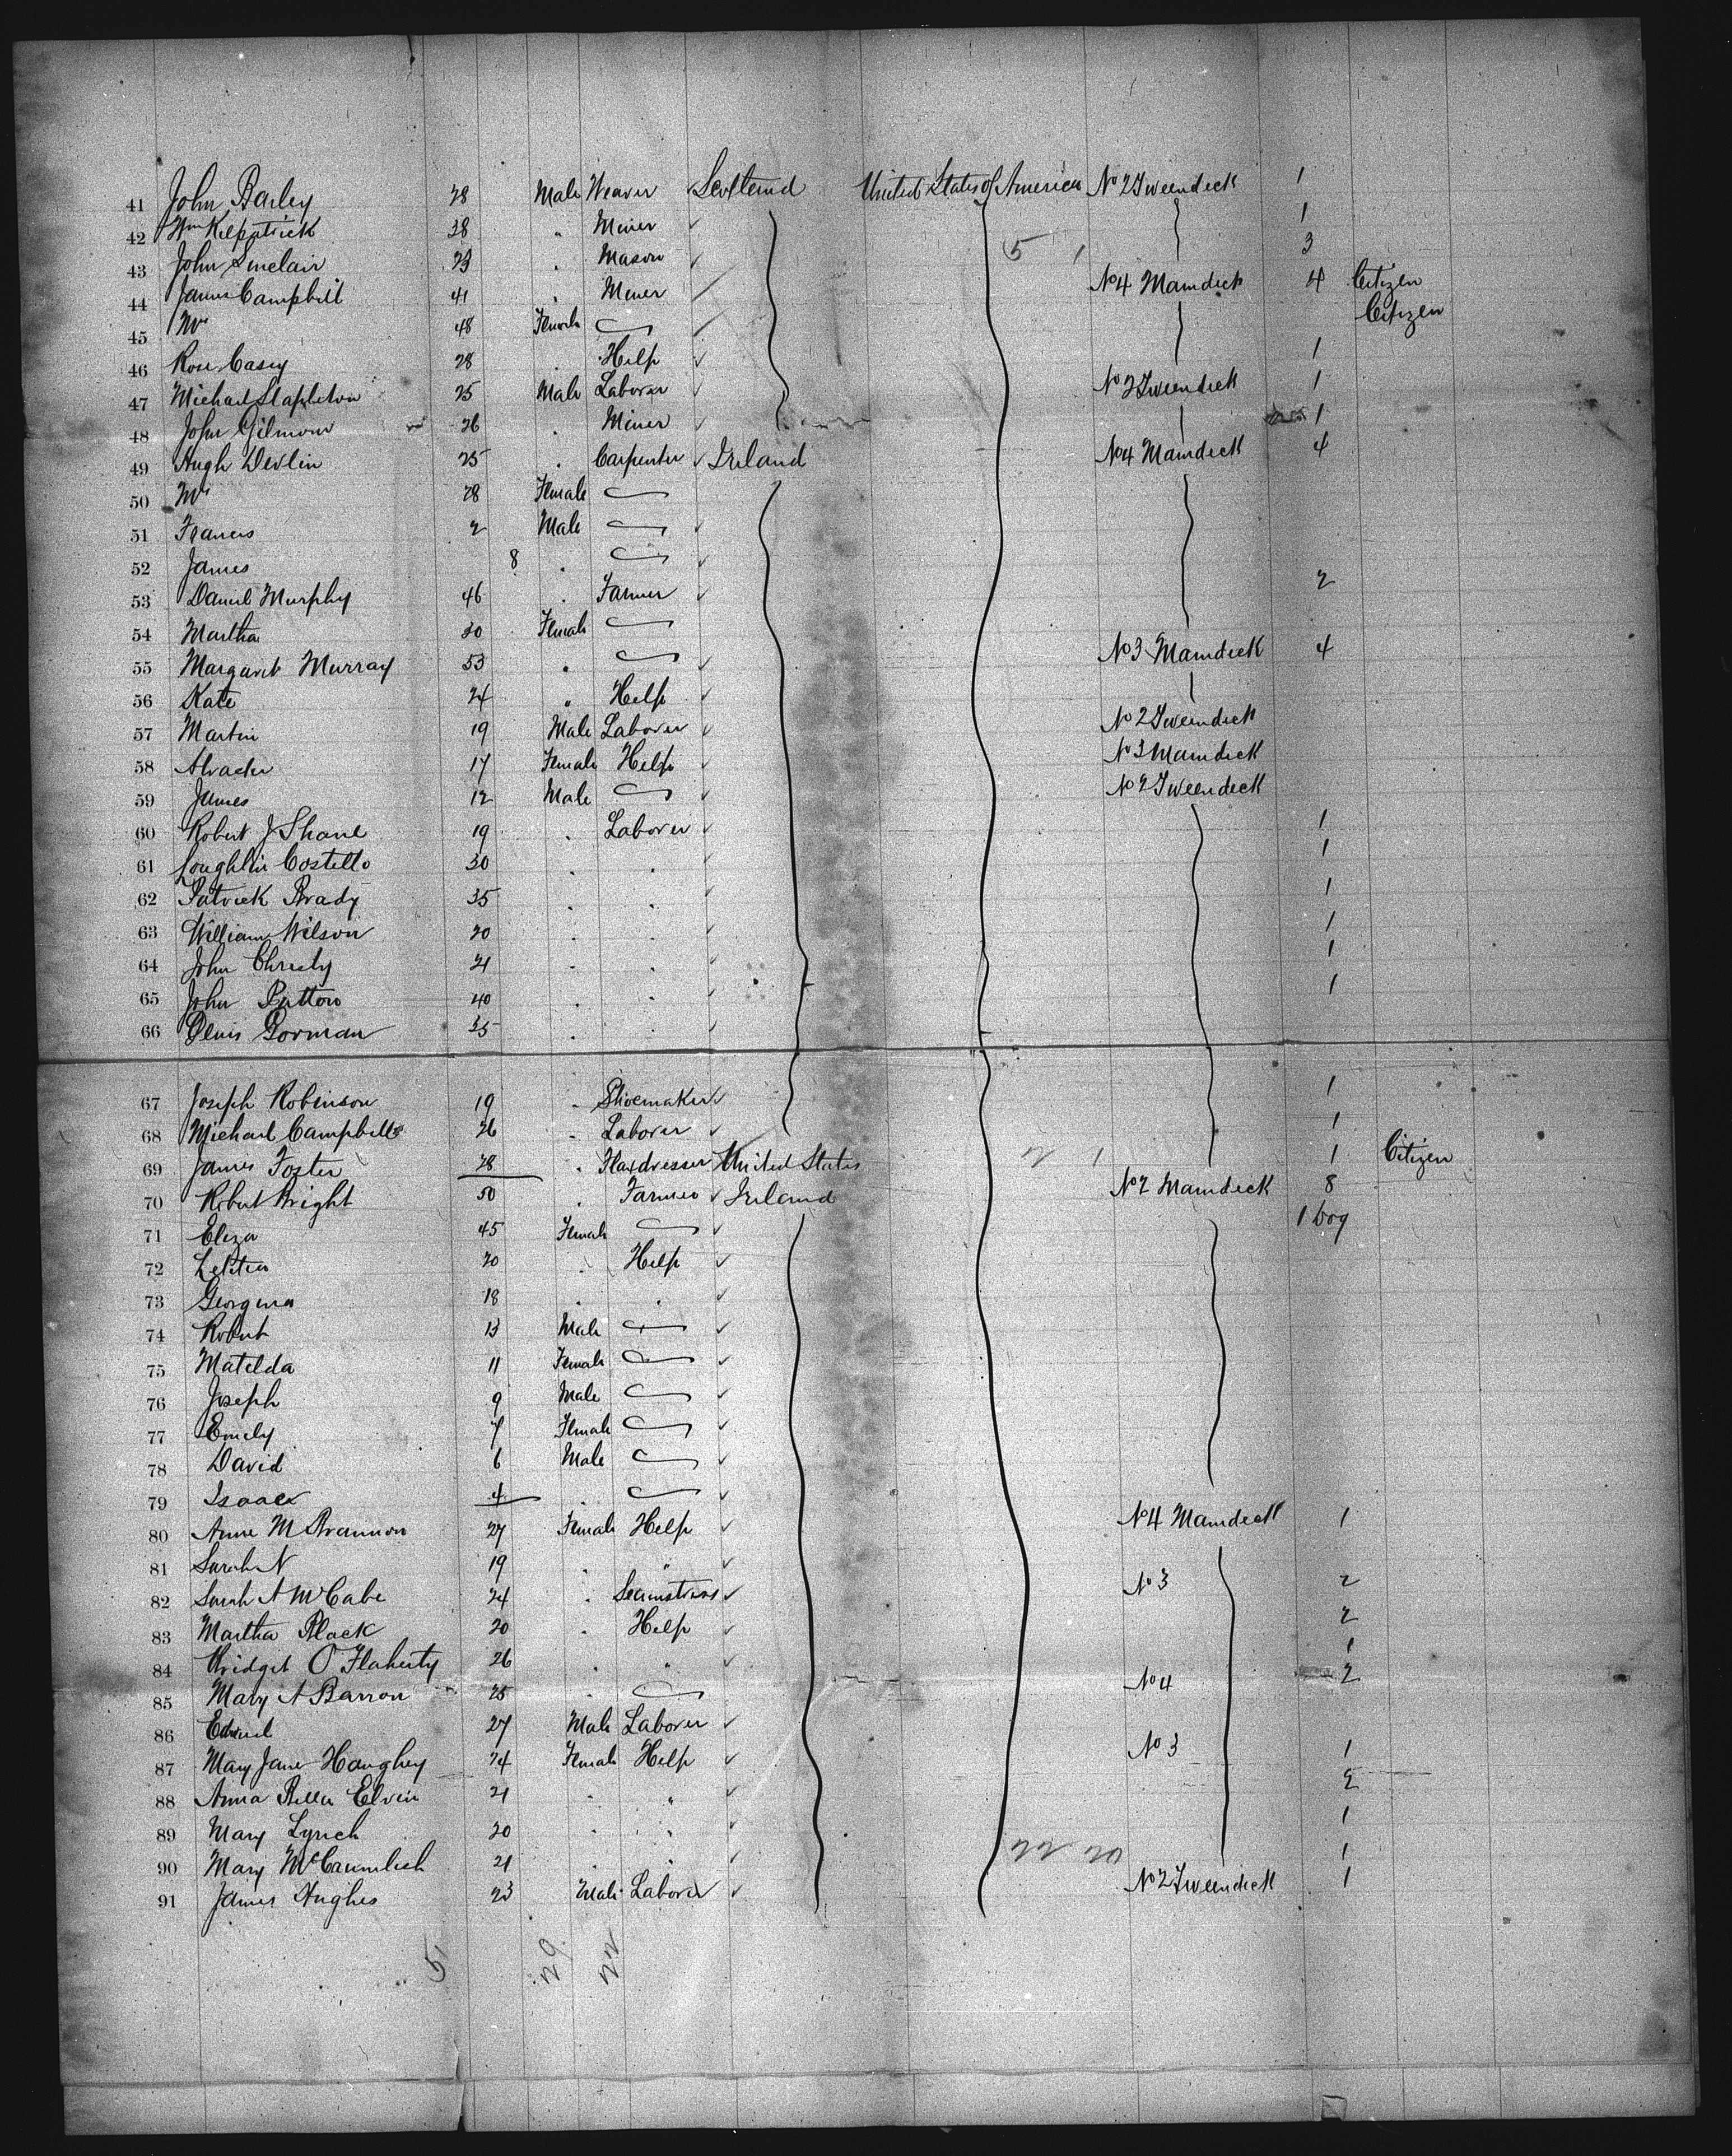 41 John Barley 28 Male Weaver Scotland United States of America No 2 Tweendeck 1
42 Wm Kilpatrick 28 " Miner 1
43 John Sinclair 23 " Mason 5 1 3
44 James Campbell 41 " Miner No 4 Maindeck 4 Citizen
45 Mrs 48 Female Citizen
46 Rose Casey 28 " Help 1
47 Michael Stapleton 25 Male Laborer No 2 Tweendeck 1
48 John Gilmour 26 " Miner 1
49 Hugh Devlin 25 " Carpenter Ireland No 4 Maindeck 4
50 Mrs 28 Female
51 Francis 2 Male
52 James 8 "
53 Daniel Murphy 46 " Farmer 2
54 Martha 30 Female
55 Margaret Murray 53 " No 3 Maindeck 4
56 Kate 24 " Help
57 Martin 19 Male Laborer No 2 Tweendeck
58 17 Female Help No 3 Maindeck
59 James 12 Male No 2 Tweendeck
60 Robert J Shane 19 " Laborer 1
61 Loughlin Costello 30 " " 1
62 Patrick Brady 35 " " 1
63 William Wilson 20 " " 1
64 John Christy 21 " " 1
65 John Patton 40 " " 1
66 Denis Gorman 35 " "
67 Joseph Robinson 19 " Shoemaker 1
68 Michael Campbell 26 " Laborer 1
69 James Foster 28 " Flaxdresser United States 2 1 1 Citizen
70 Robert Bright 50 " Farmer Ireland No 2 Maindeck 8
71 Eliza 45 Female 1 Dog
72 Letitia 20 " Help
73 Georgina 18 " "
74 Robert 13 Male
75 Matilda 11 Female
76 Joseph 9 Male
77 Emily 7 Female
78 David 6 Male
79 Isaac 4 "
80 Anne M Brannon 27 Female Help No 4 Maindeck 1
81 Sarah N 19 " "
82 Sarah A McCabe 24 " Seamstress No 3 2
83 Martha Black 20 " Help 2
84 Bridget O'Flaherty 26 " " 1
85 Mary A Barron 25 " No 4 2
86 Edward 27 Male Laborer
87 Mary Jane Haughey 24 Female Help No 3 1
88 Anna Bella Elvin 21 " " 2
89 Mary Lynch 20 " " 1
90 Mary McCaumlish 21 " " 22 20 1
91 James Hughes 23 Male Laborer No 2 Tweendeck 1
51 29 22